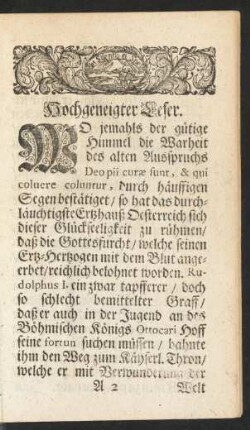 Hochgeneigter Leser.
WO jemahls der gütige
Himmel die Warheit
des alten Ausspruchs
Deo pii curæ sunt, & qui
coluere coluntur, durch häuffigen
Segen bestätiget / so hat das durch-
läuchtigste Ertzhauß Oesterreich sich
dieser Glückseeligkeit zu rühmen /
daß die Gottesfurcht / welche seinen
Ertz-Hertzogen mit dem Blut ange-
erbet / reichlich belohnet worden. Ru-
dolphus I. ein zwar tapfferer / doch
so schlecht bemittelter Graff /
daß er auch in der Jugend an des
Böhmischen Königs Ottocari Hoff
seine fortun suchen müssen / bahnte
ihm den Weg zum Käyserl. Thron /
welche er mit Verwunderung der
A 2 Welt